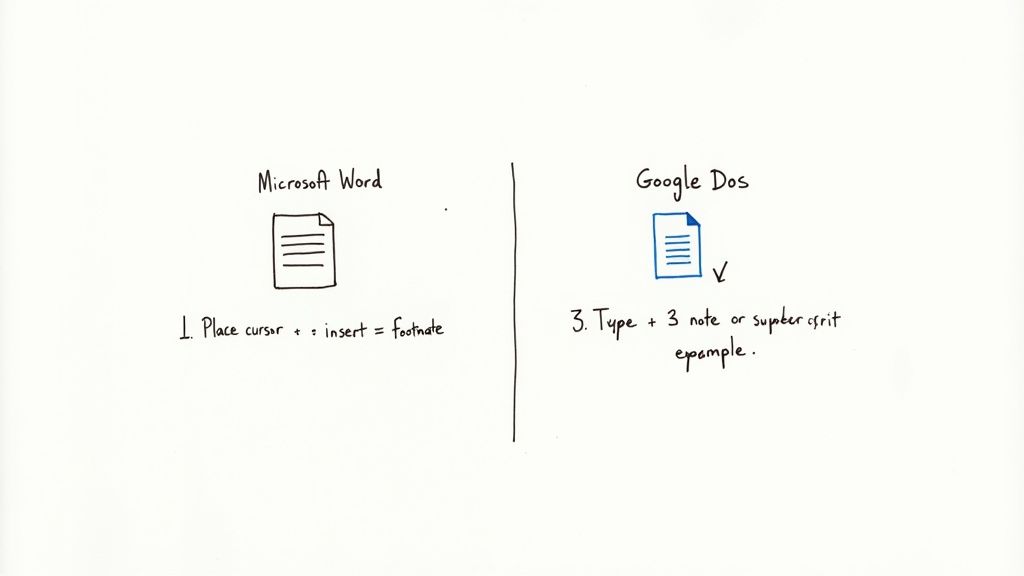 Microsoft Word
1. Place cursor + : insert = footnate
Google Dos
3. Type + 3 note or
epample.